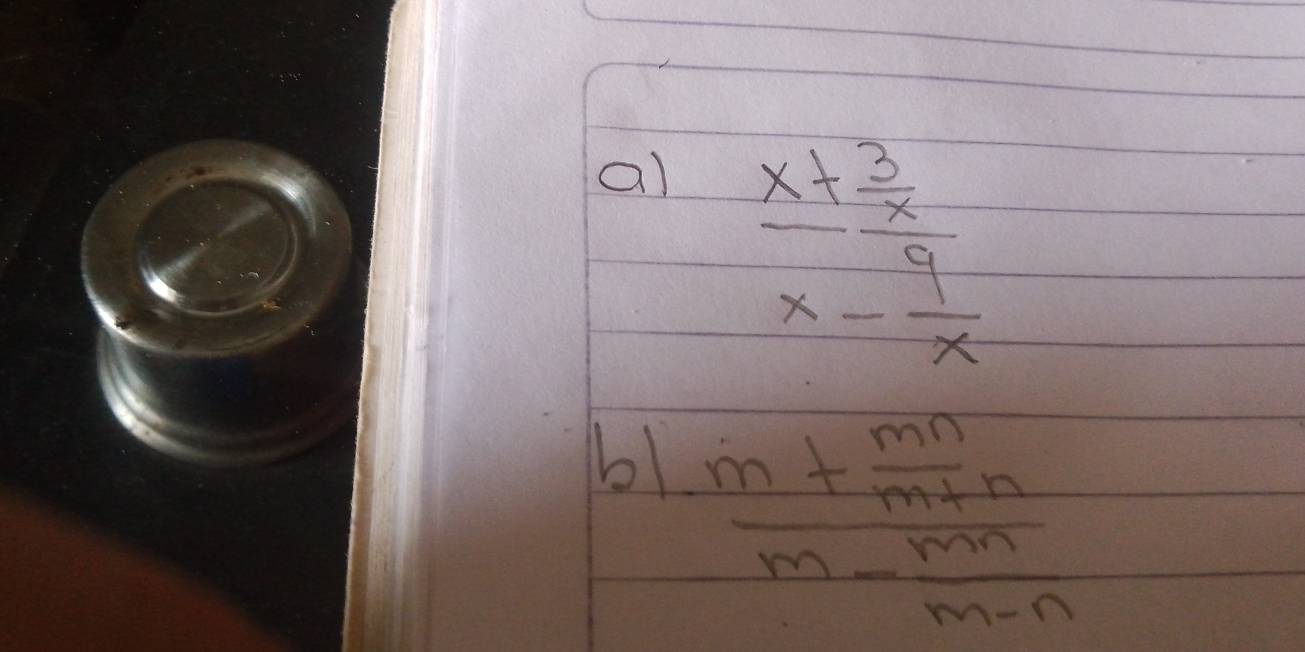 a) x + 3/x
x - 9/x
b) m + mn/m+n
m - mn/m-n